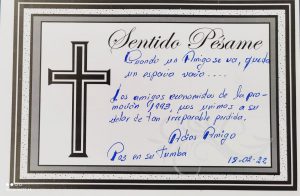 Sentido Pésame
Cuando un Amigo se va, queda
un espacio vacío....
Los amigos economistas de la pro-
moción 1992, nos unimos a su
dolor de tan irreparable perdida.
Adios Amigo
Paz en su tumba
19-02-22